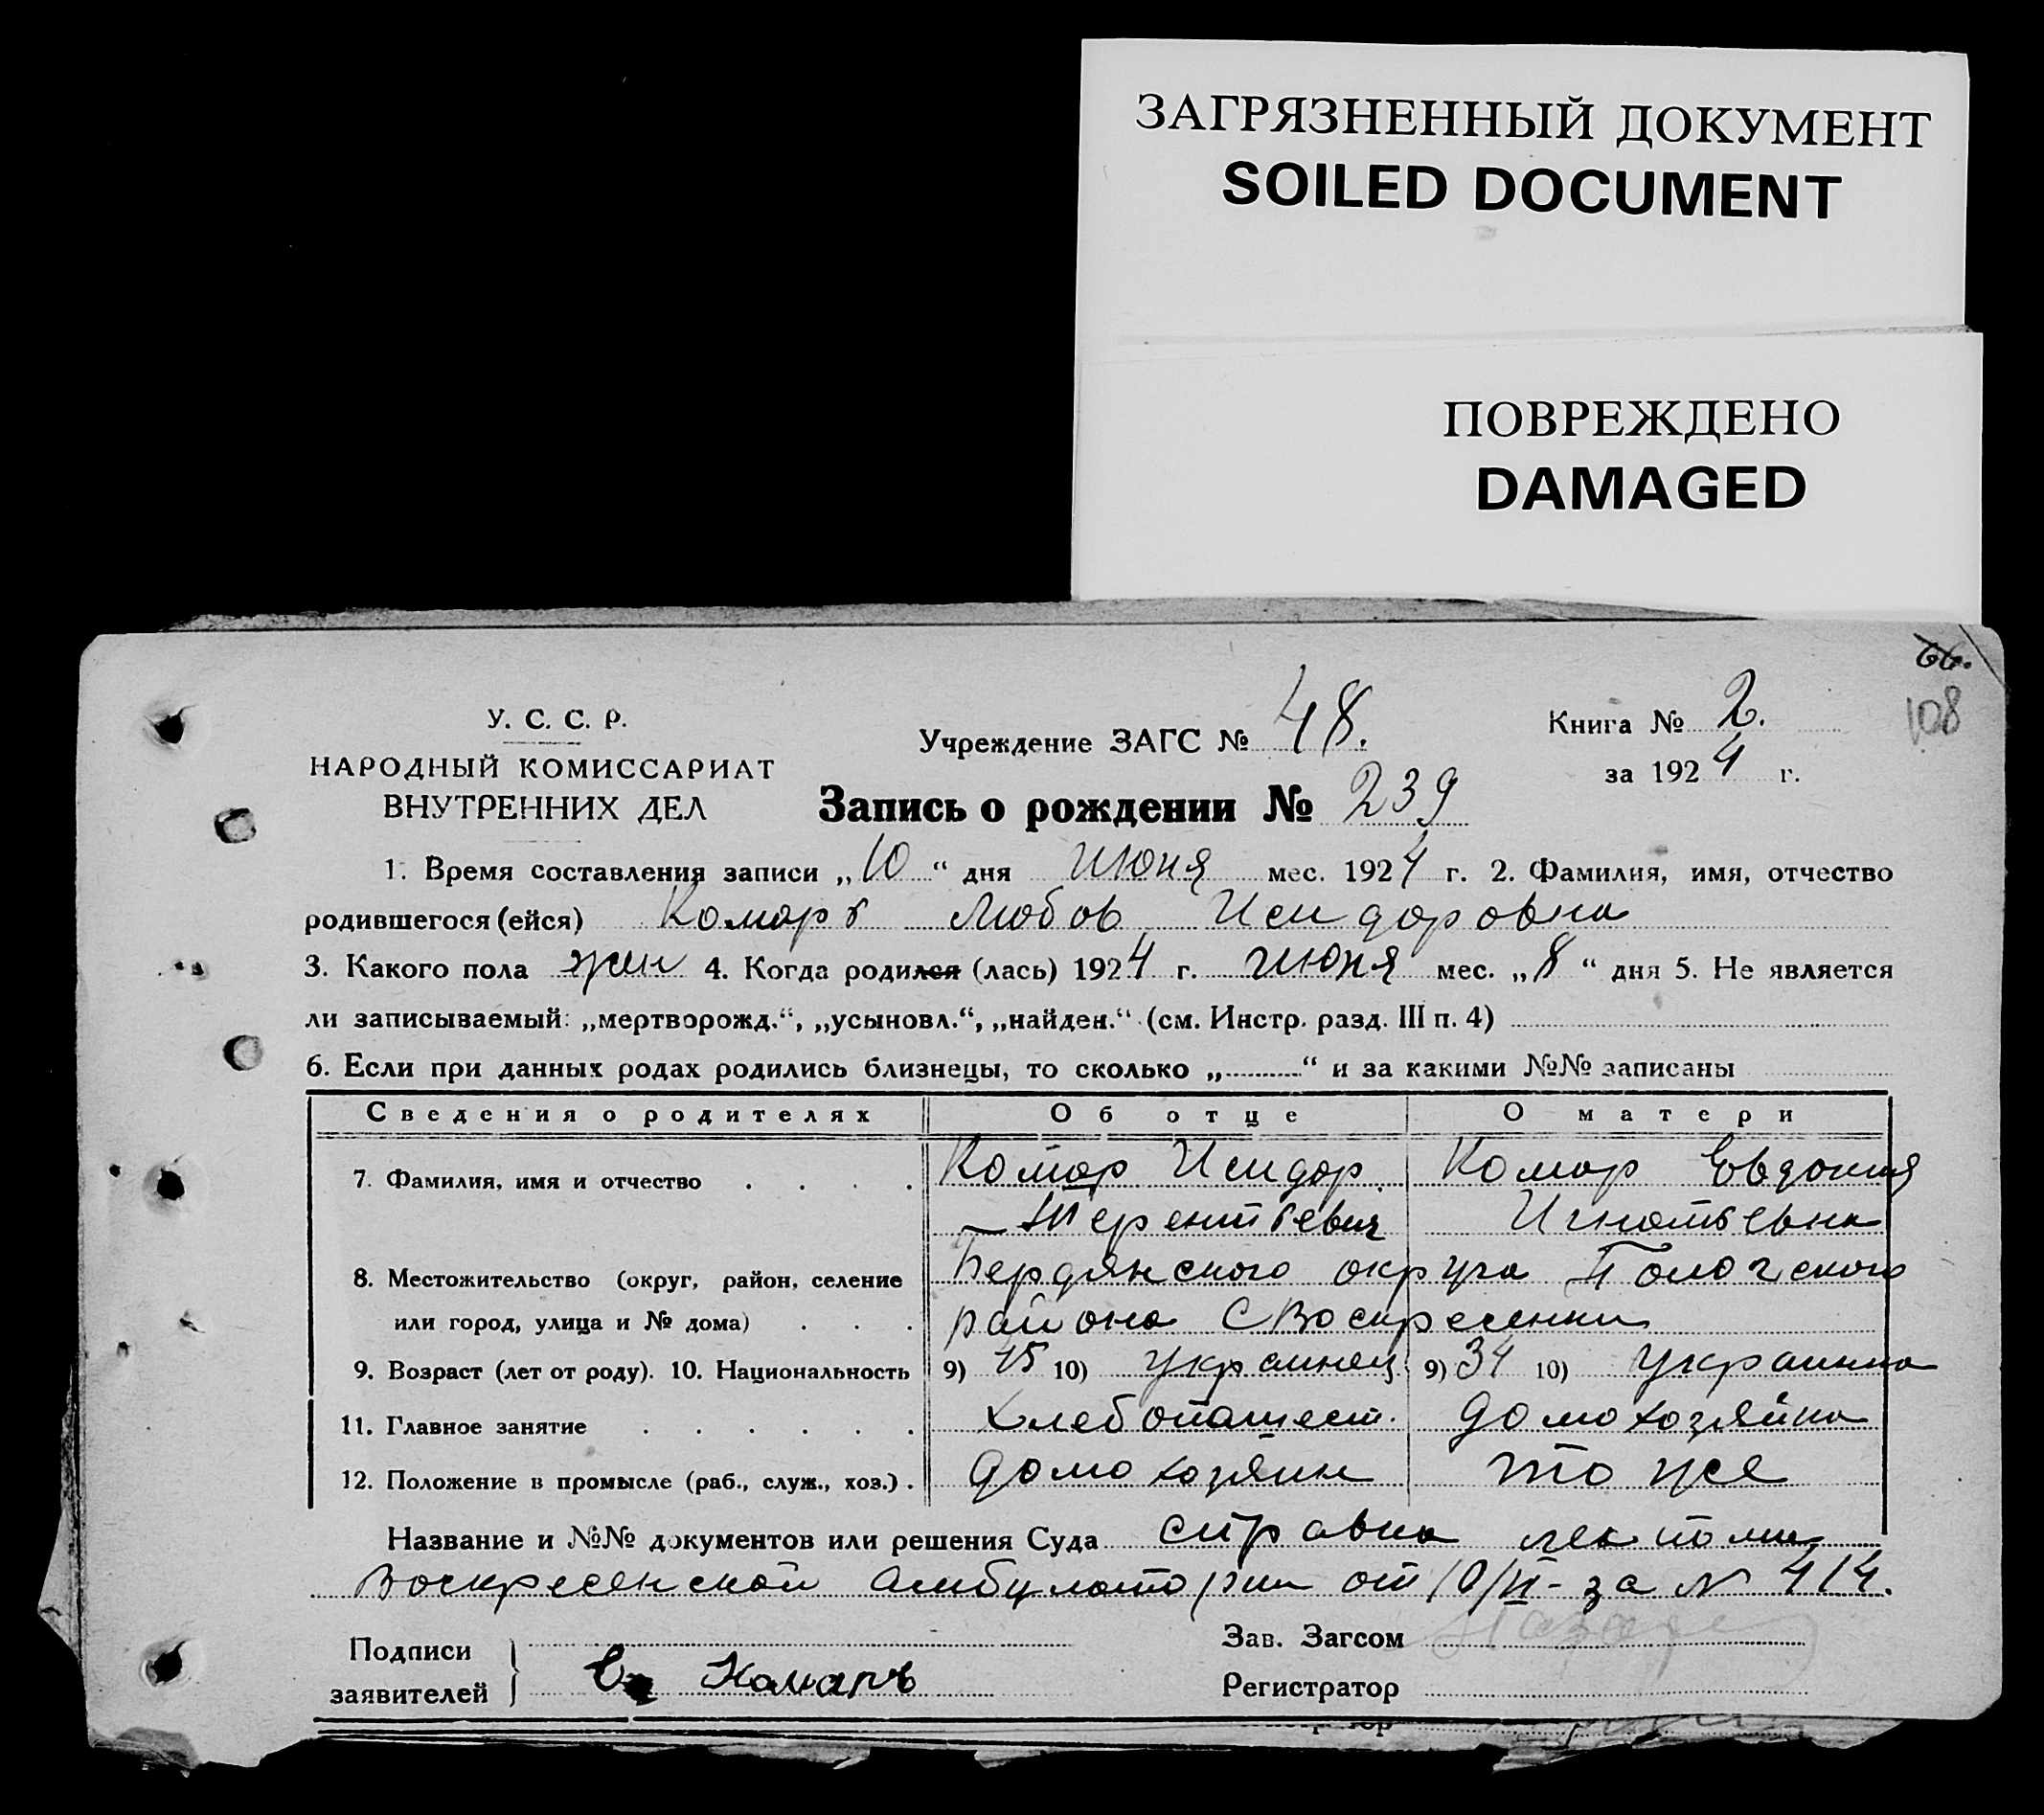 ЗАГРЯЗНЕННЫЙ ДОКУМЕНТ
SOILED DOCUMENT
ПОВРЕЖДЕНО
DAMAGED
66.
108
У. С. С. Р.
НАРОДНЫЙ КОМИССАРИАТ
ВНУТРЕННИХ ДЕЛ
Учреждение ЗАГС № 48.
Книга № 2.
за 1924 г.
Запись о рождении № 239
1. Время составления записи „10“ дня июня мес. 1924 г. 2. Фамилия, имя, отчество
родившегося (ейся) Комарь Любов Исидоровна
3. Какого пола жен 4. Когда родился (лась) 1924 г. июня мес. „8“ дня 5. Не является
ли записываемый: „мертворожд.“, „усыновл.“, „найден.“ (см. Инстр. разд. III п. 4)
6. Если при данных родах родились близнецы, то сколько „ “ и за какими №№ записаны
Сведения о родителях Об отце О матери
7. Фамилия, имя и отчество . . . . Комар Исидор. Комар Евдокия
Терентьевич Игнатьевна
8. Местожительство (округ, район, селение Бердянского округа Пологского
или город, улица и № дома) . . . района С Воскресенки
9. Возраст (лет от роду). 10. Национальность 9) 45 10) украинец 9) 34 10) украинка
11. Главное занятие . . . . . . Хлебопашест. домохозяйка
12. Положение в промысле (раб., служ., хоз.) . домохозяин то же
Название и №№ документов или решения Суда справка лекпома
Воскресенской амбулатории от 10/VI - за № 414.
Подписи
заявителей
Комаръ
Зав. Загсом
Регистратор